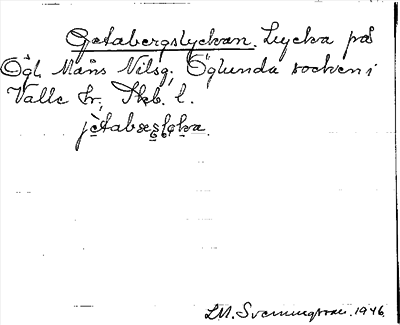 Getabergslyckan. Lycka på
Ögl Måns Nilsg, Öglunda socken i
Valle hr, Skb. l.
jètabæs̬lo̬ka.
I.M. Svenningsson. 1946.